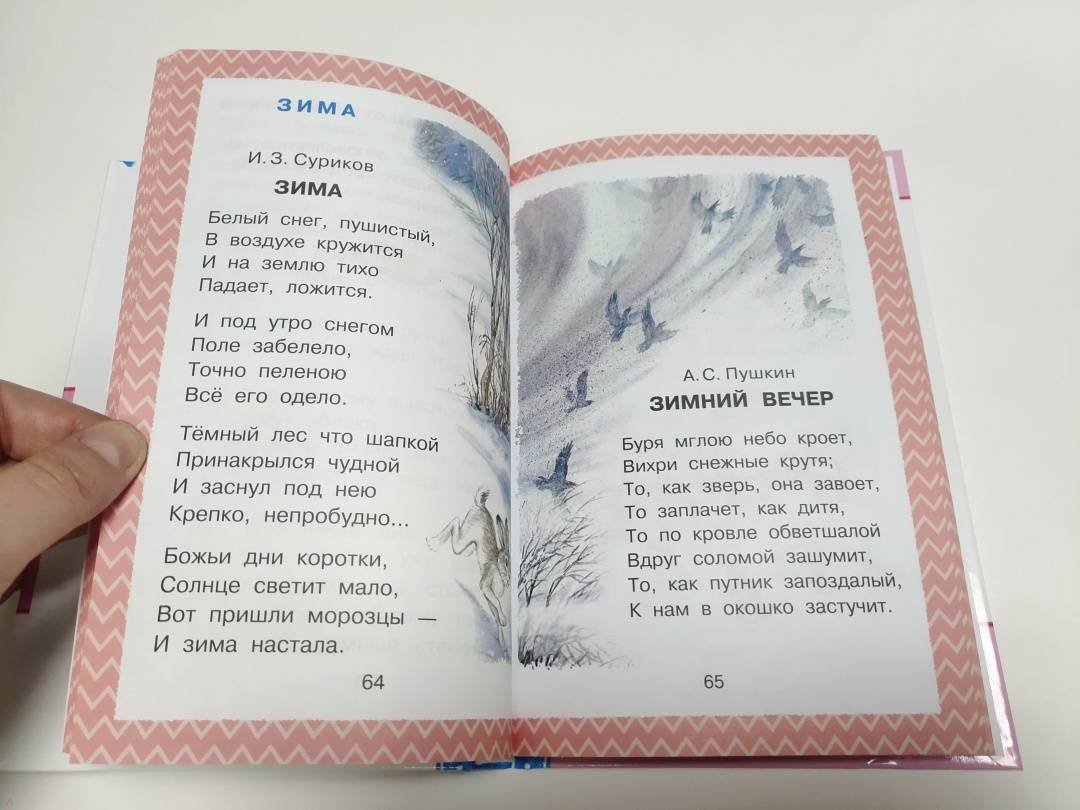 ЗИМА
И. З. Суриков
ЗИМА
Белый снег, пушистый,
В воздухе кружится
И на землю тихо
Падает, ложится.
И под утро снегом
Поле забелело,
Точно пеленою
Всё его одело.
Тёмный лес что шапкой
Принакрылся чудной
И заснул под нею
Крепко, непробудно...
Божьи дни коротки,
Солнце светит мало,
Вот пришли морозцы —
И зима настала.
64
А. С. Пушкин
ЗИМНИЙ ВЕЧЕР
Буря мглою небо кроет,
Вихри снежные крутя;
То, как зверь, она завоет,
То заплачет, как дитя,
То по кровле обветшалой
Вдруг соломой зашумит,
То, как путник запоздалый,
К нам в окошко застучит.
65